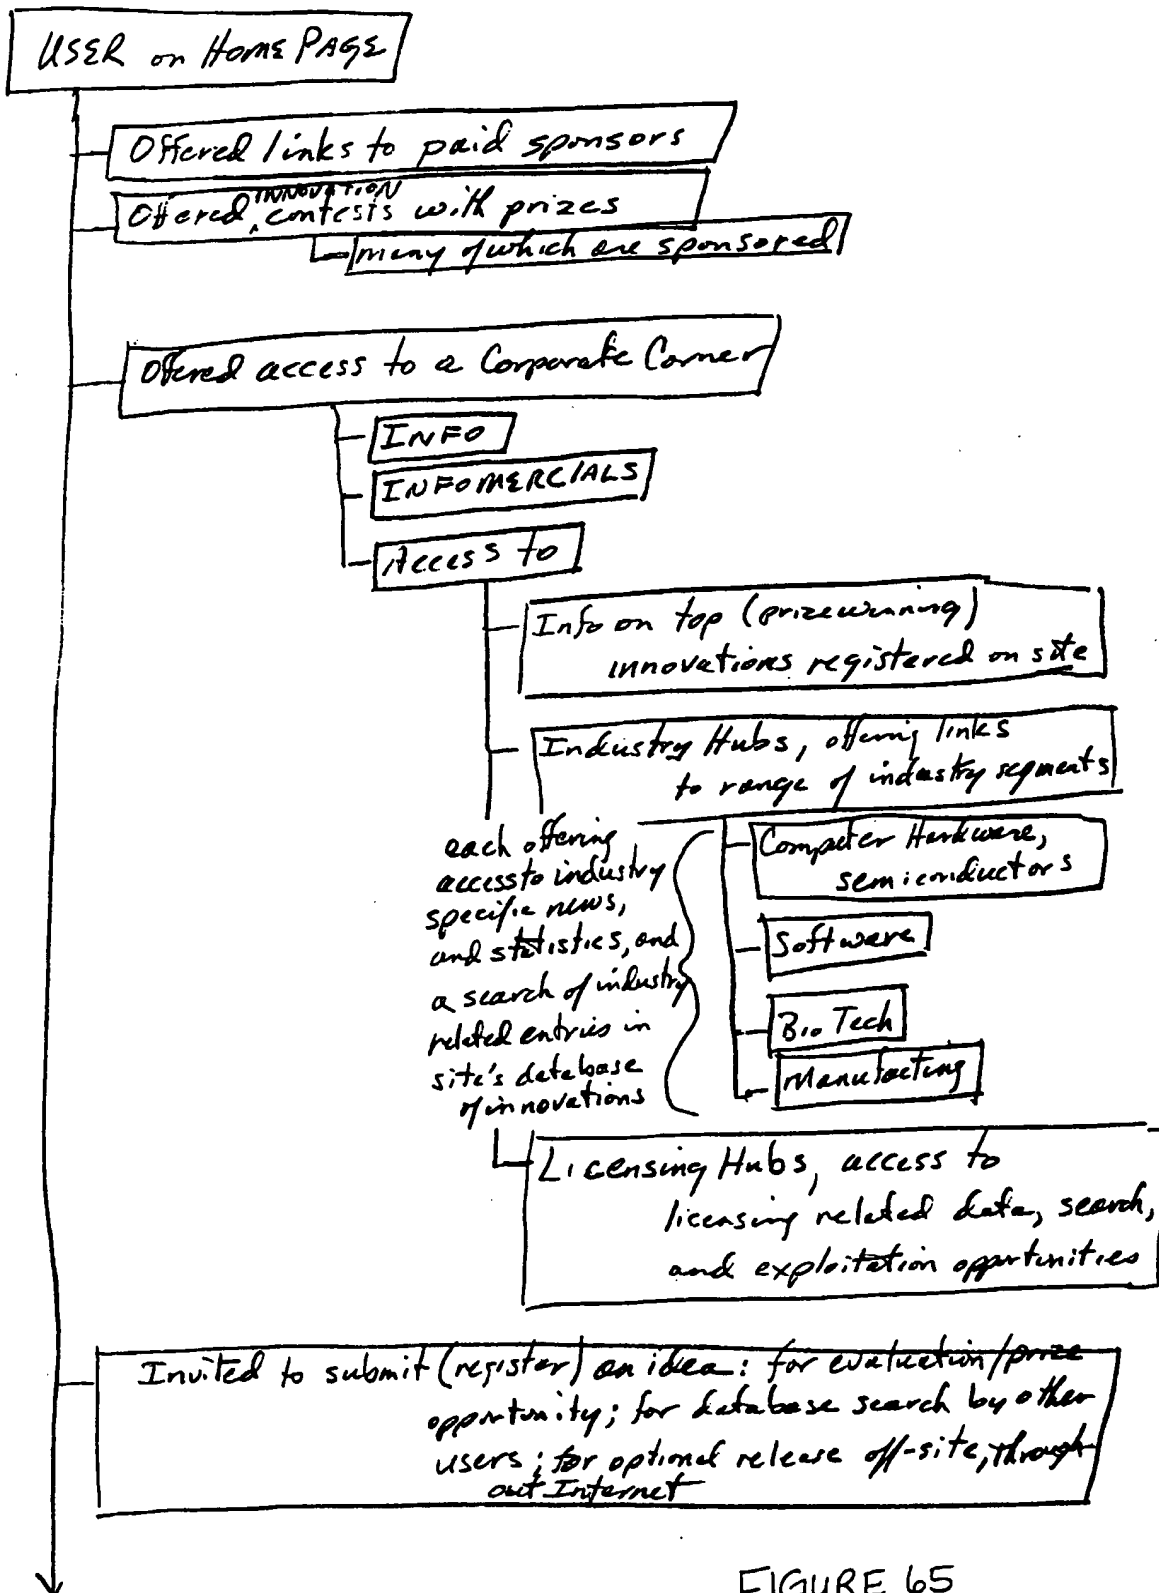 USER on HOME PAGE
Offered links to paid sponsors
INNOVATION
Offered ^ contests with prizes
many of which are sponsored
Offered access to a Corporate Corner
INFO
INFOMERCIALS
Access to
Info on top (prizewinning)
innovations registered on site
Industry Hubs, offering links
to range of industry segments
each offering
access to industry
specific news,
and statistics, and
a search of industry
related entries in
site's database
of innovations
Computer Hardware,
semiconductors
Software
Bio Tech
Manufacting
Licensing Hubs, access to
licensing related data, search,
and exploitation opportunities
Invited to submit (register) an idea: for evaluation/prize
opportunity; for database search by other
users; for optional release off-site, through-
out Internet
FIGURE 65